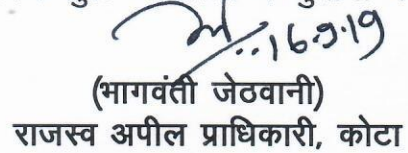 16.9.19
(भागवंती जेठवानी)
राजस्व अपील प्राधिकारी, कोटा